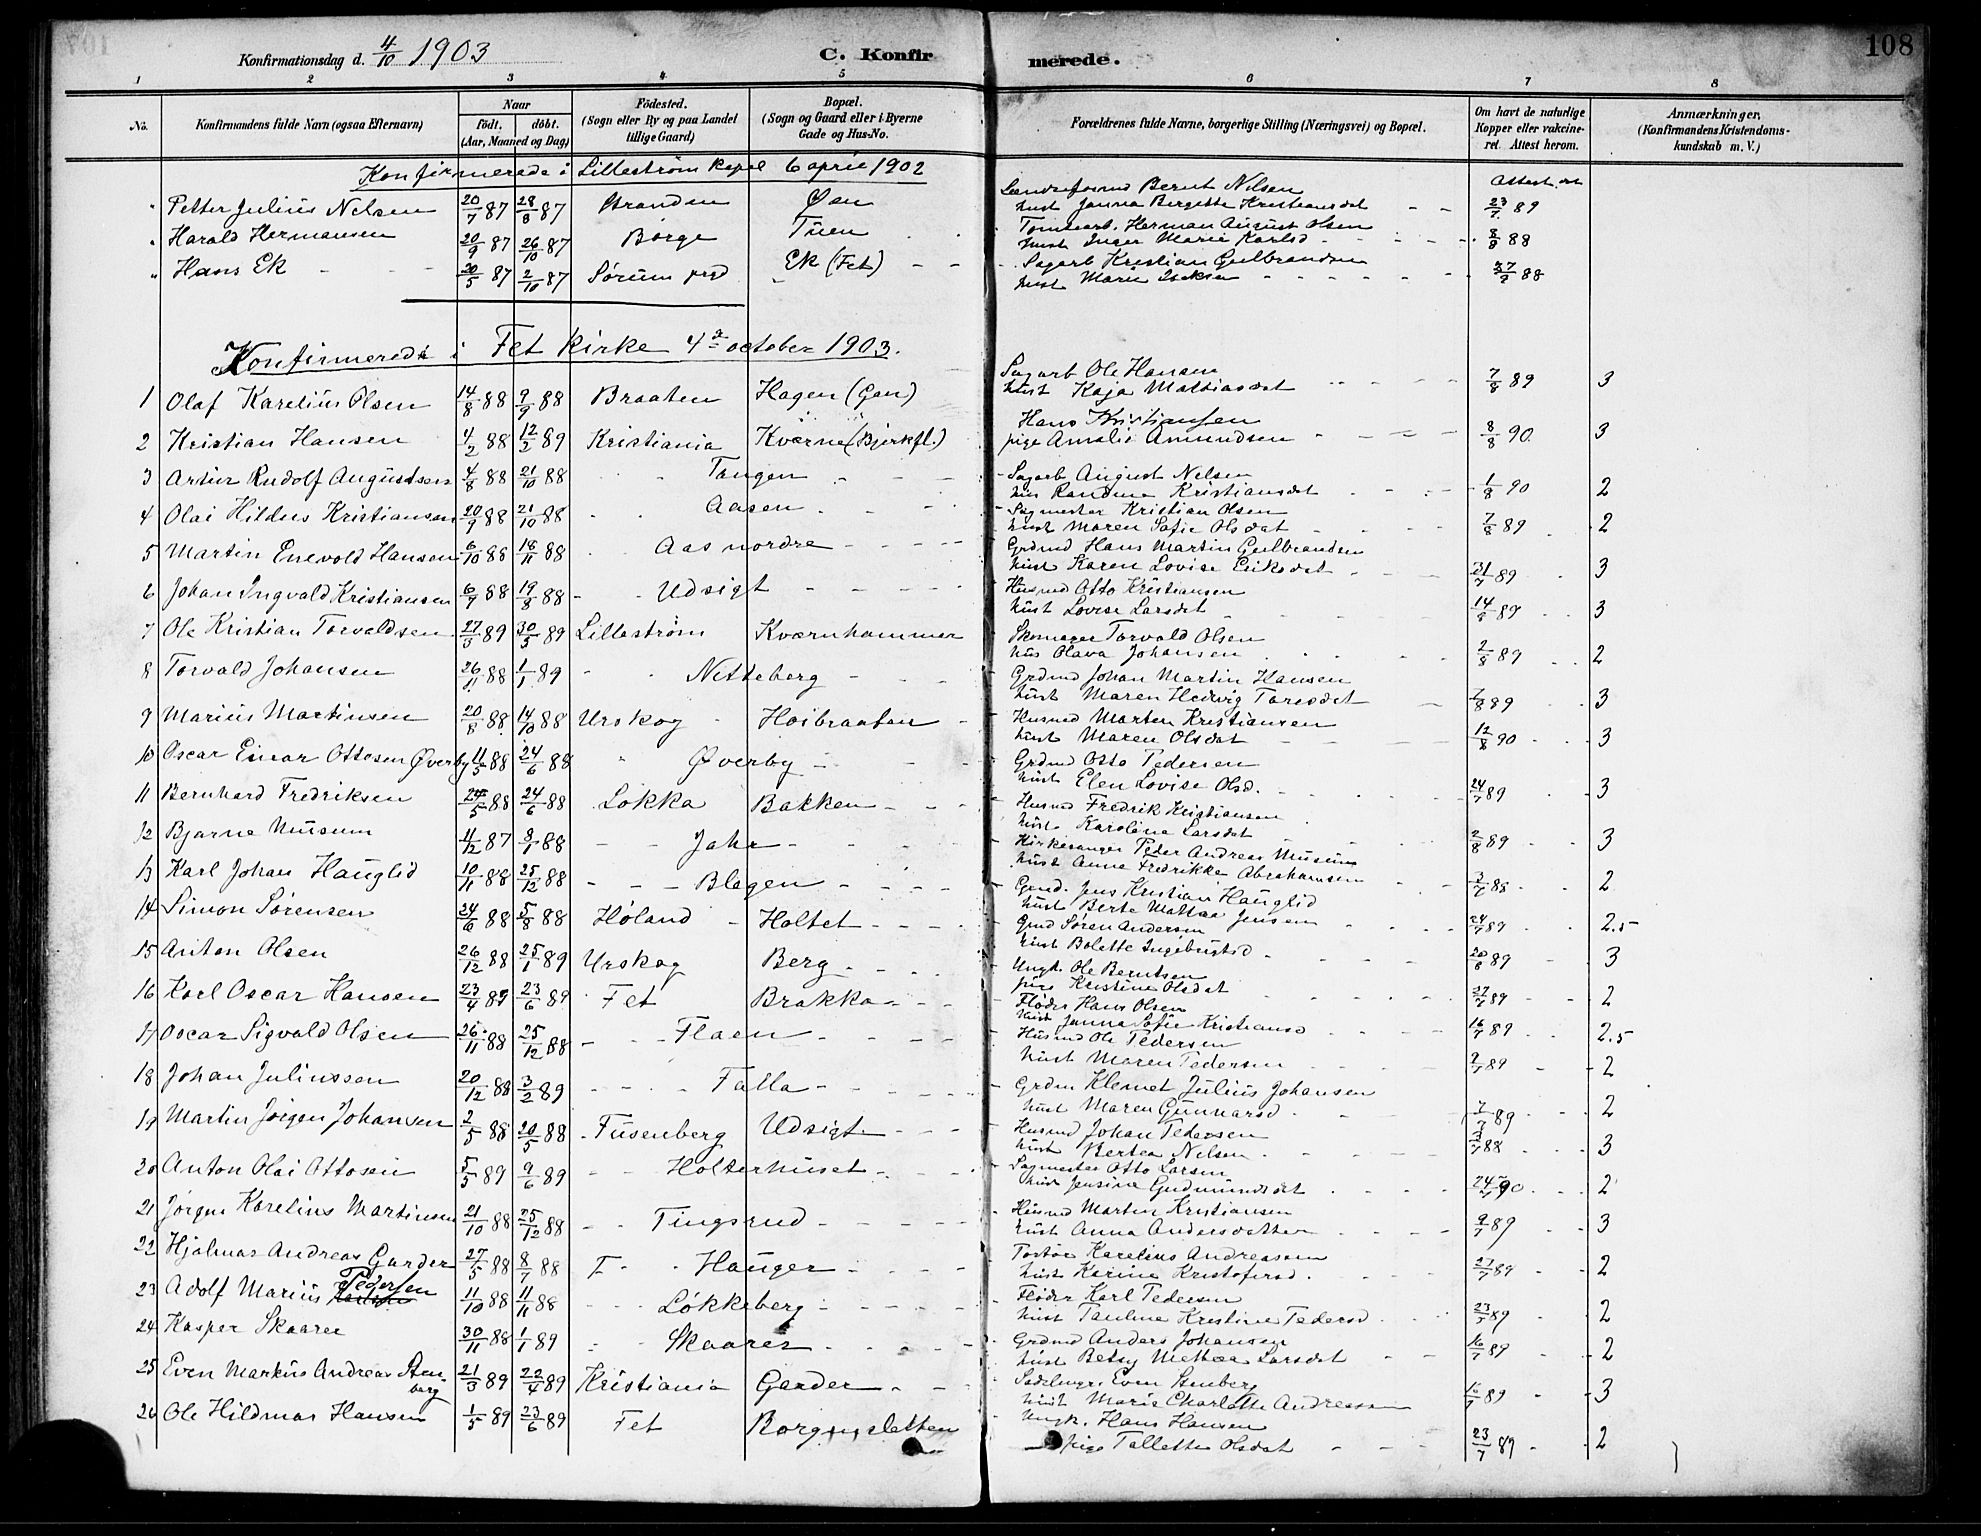 108
Konfirmationsdag d. 4/10 1903 C. Konfirmerede.
1 2 3 4 5 6 7 8
No. Konfirmandens fulde Navn (ogsaa Efternavn) Naar født. døbt. (Aar, Maaned og Dag) Fødested. (Sogn eller By og paa Landet tillige Gaard) Bopæl. (Sogn og Gaard eller i Byerne Gade og Hus-No. Forældrenes fulde Navne, borgerlige Stilling (Næringsvei) og Bopæl. Om havt de naturlige Kopper eller vakcineret. Attest herom. Anmærkninger, (Konfirmandens Kristendomskundskab m. V.)
Konfirmerede i Lillestrøm kapel 6 april 1902
" Petter Julius Nelsen 20/7 87 28/8 87 Branden Øen Bernt Nilsen hust Janna Bergitte Kristiansdat 23/7 89
" Harald Hermansen 20/9 87 26/10 87 Borge Tuen Tomtearb. Herman August Olsen hust Inger Marie Karlsd 8/9 88
" Hans Ek 20/5 87 2/10 87 Sørum prgd Ek (Fet) Sagarb Kristian Gulbrandsen hust Marie Isaksen 88
Konfirmerede i Fet kirke 4de october 1903.
1 Olaf Karelius Olsen 14/8 88 9/9 88 Braaten Hagen (Gan) Sagarb Ole Hansen hust Kaja Mathiasdat 7/8 89 3
2 Kristian Hansen 4/2 88 12/2 89 Kristiania Kværne (Bjerkfl.) Hans Kristiansen pige Amalie Amundsen 8/8 90 3
3 Artur Rudolf Augustsen 4/8 88 21/10 88 Tangen Sagarb August Nelsen hus Randine Kristiansdat 1/8 90 2
4 Olai Hildus Kristiansen 20/9 88 21/10 88 Aasen Sagmester Kristian Olsen hust Maren Sofie Olsdat 7/8 89 2
5 Martin Enevold Hansen 6/10 88 18/11 88 Aas nordre Grdmd Hans Martin Gulbrandsen hust Karen Lovise Eriksdat 31/7 89 3
6 Johan Ingvald Kristiansen 6/7 88 19/8 88 Udsigt Husmd Otto Kristiansen hust Lovise Larsdat 14/8 89 3
7 Ole Kristian Torvaldsen 27/3 89 30/5 89 Lillestrøm Kværnhammer Skomager Torvald Olsen hus Olava Johansen 2/8 89 2
8 Torvald Johansen 26/11 88 1/1 89 Nitteberg Grdmd Johan Martin Hansen hust Maren Hedvig Toresdat 2/8 89 3
9 Marius Martinsen 20/8 88 14/10 88 Urskog Hoibraaten Husmd Morten Kristiansen hust Maren Olsdat 12/8 90 3
10 Oscar Einar Ottosen Øverby 11/5 88 24/6 88 Øverby Grdmd Otto Pedersen hust Elen Lovise Olsd. 24/7 89 3
11 Bernhard Fredriksen 24/5 88 24/6 88 Løkka Bakken Husmd Fredrik Kristiansen hust Karoline Larsdat 2/8 89 3
12 Bjarne Museum 11/12 87 8/1 88 Jahr Kirkesanger Peder Andreas Museum hust Anne Fredrikke Abrahamsen 88 2
13 Karl Johan Hauglid 10/11 88 25/12 88 Blegen Jens Kristian Hauglid hust Berte Mathea Jensen 24/7 89 2.5
14 Simon Sørensen 24/6 88 5/8 88 Høland Holtet Søren Andersen hust Bolette Ingebrigtsd 20/8 89 3
15 Anton Olsen 26/12 88 25/1 89 Urskog Berg Ungk. Ole Berntsen pige Kristine Olsdat 27/7 89 2
16 Karl Oscar Hansen 23/4 89 23/6 89 Fet Brakka Fløder Hans Olsen hust Janna Sofie Kristiansd 16/7 89 2.5
17 Oscar Sigvald Olsen 26/11 88 25/12 88 Flaen Husmd Ole Pedersen hust Maren Pedersen 2/7 89 2
18 Johan Juliussen 20/12 88 3/2 89 Falla Grdm Klemet Julius Johansen hust Maren Gunnarsd 2/7 89 2
19 Martin Jørgen Johansen 2/5 88 20/5 88 Fusenberg Udsigt Husmd Johan Pedersen hust Bertea Nelsen 88 3
20 Anton Olai Ottosen 5/5 89 9/6 89 Holterhuset Sagmester Otto Larsen hust Jensine Gudmundsdat 24/7 90 2
21 Jørgen Karelius Martinsen 21/10 88 25/12 88 Tingsrud Husmd Martin Kristiansen hust Anna Andersdatter 9/7 89 3
22 Hjalmar Andreas Garder 27/5 88 8/7 88 F Hauger Karelius Andreassen hust Karine Kristofersd. 27/7 89 2
23 Adolf Marius Pedersen 11/10 88 11/11 88 Løkkeberg Fløder Karl Pedersen hust Pauline Kristine Pedersd 23/7 89 2
24 Kasper Skaarer 30/11 88 1/1 89 Skaarer Grdmd Anders Johansen hust Betsy Mathea Larsdat 16/7 89 2
25 Even Markus Andreas Stenberg 21/3 89 22/4 89 Kristiania Garder Sadelmgr. Even Stenberg hust Marie Charlotte Andreassen 16/7 89 3
26 Ole Hildmar Hansen 1/5 89 23/6 89 Fet Borgenssletten Ungk. Hans Hansen pige Tallette Olsdat 23/7 89 2